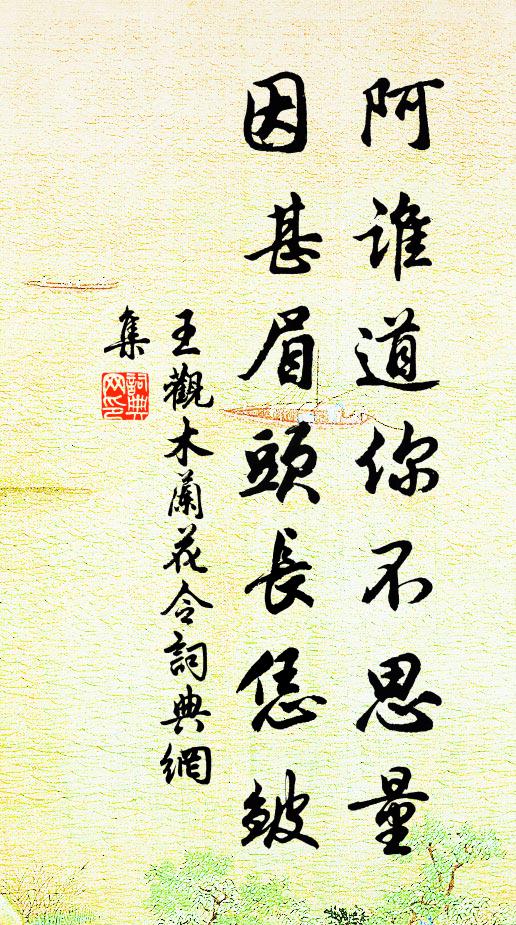 阿誰道你不思量
因甚眉頭長恁皺
王觀木蘭花令詞典網
集
詞典網印